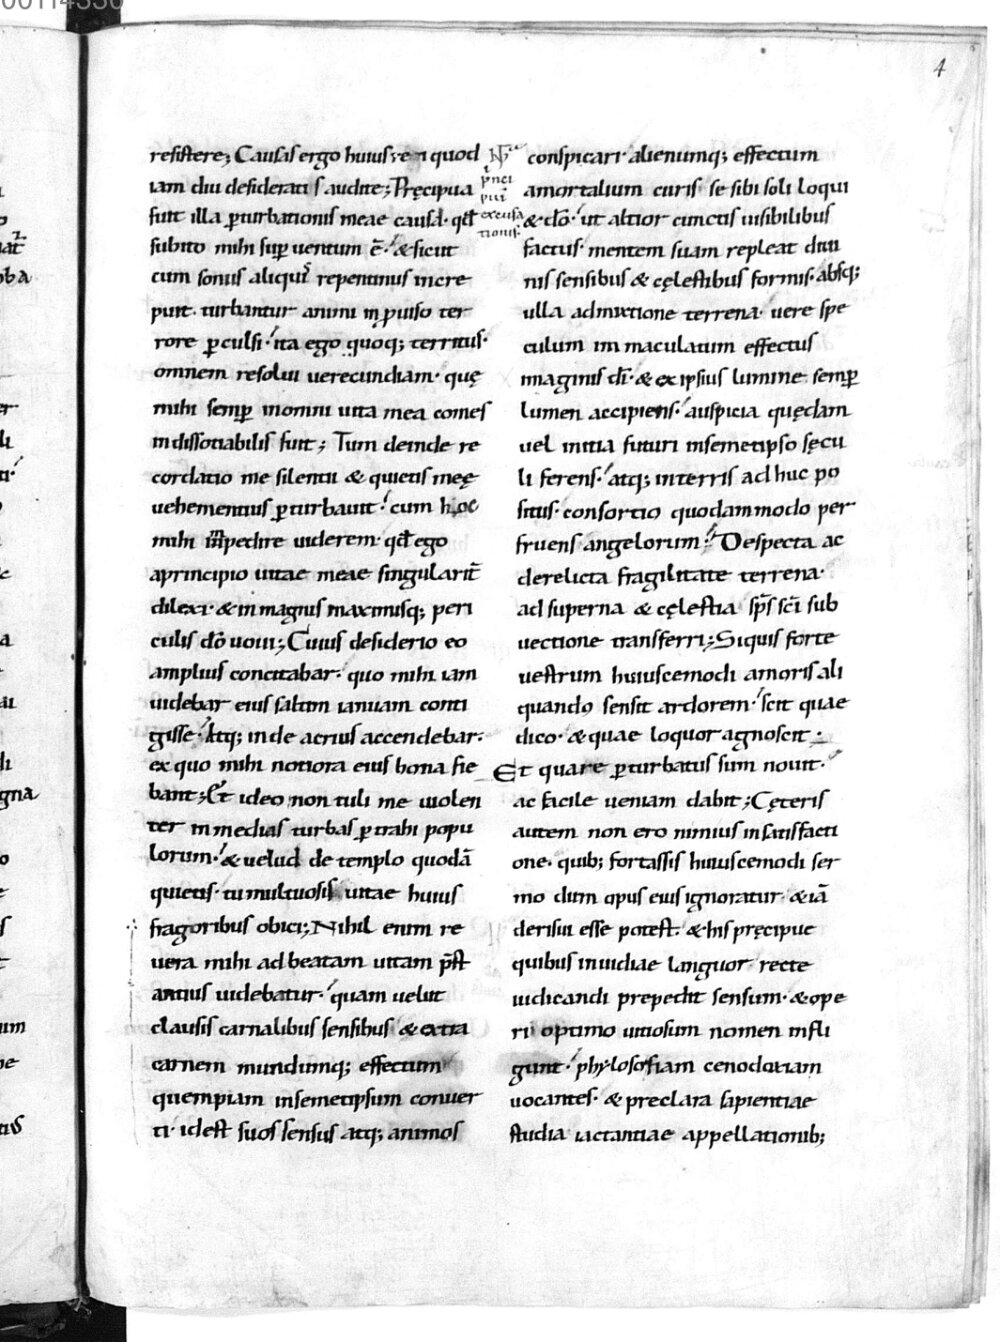 4
resistere; Causas ergo huius rei quod
iam diu desiderati s audite; Pręcipua
fuit illa ꝑturbationis meae causa. qđ
subito mihi suꝑ uentum ē. & sicut
cum sonus aliquis repentinus incre
puit. turbantur animi inꝓuiso ter
rore ꝑculsi. ita ego quoq; territus.
omnem resolui uerecundiam. quę
mihi semꝑ inomni uita mea comes
indissotiabilis fuit; Tum deinde re
cordatio me silentii & quietis meę
uehementius ꝑturbauit. cum hoc
mihi impedire uiderem. qđ ego
aprincipio uitae meae singularit̄
dilexi. & in magnis maximisq; peri
culis dō uoui; Cuius desiderio eo
amplius concitabar. quo mihi iam
uidebar eius saltim ianuam conti
gisse. Atq; inde acrius accendebar.
ex quo mihi notiora eius bona fie
bant; Et ideo non tuli me uiolen
ter inmedias turbas ꝑtrahi popu
lorum. & uelud de templo quodā
quietis. tumultuosis uitae huius
fragoribus obici; Nihil enim re
uera mihi ad beatam uitam p̄st
antius uidebatur. quam uelut
clausis carnalibus sensibus & extra
carnem mundumq; effectum
quempiam insemetipsum conuer
ti. idest suos sensus atq; animos
pnci
pui
excusa
tionis.
conspicari alienumq; effectum
amortalium curis se sibi soli loqui
& dō. ut altior cunctis uisibilibus
factus. mentem suam repleat diui
nis sensibus & cęlestibus formis. absq;
ulla admixtione terrena. uere spe
culum immaculatum effectus
imaginis dī. & ex ipsius lumine semꝑ
lumen accipiens. auspicia quędam
uel initia futuri insemetipso sęcu
li ferens. atq; interris ad huc po
situs. consortio quodammodo per
fruens angelorum. Despecta ac
derelicta fragilitate terrena.
ad superna & cęlestia sp̄s sc̄i sub
uectione transferri; Siquis forte
uestrum huiuscemodi amoris ali
quando sensit ardorem. scit quae
dico. & quae loquor agnoscit.
Et quare ꝑturbatus sum nouit.
ac facile ueniam dabit; Cęteris
autem non ero nimius in satisfacti
one. quib; fortassis huiuscemodi ser
mo dum opus eius ignoratur. & iā
derisui esse potest. & his pręcipue
quibus inuidiae languor recte
iudicandi prepedit sensum. & ope
ri optimo uitiosum nomen infli
gunt. phylosofiam cenodoxiam
uocantes. & preclara sapientiae
studia iactantiae appellationib;